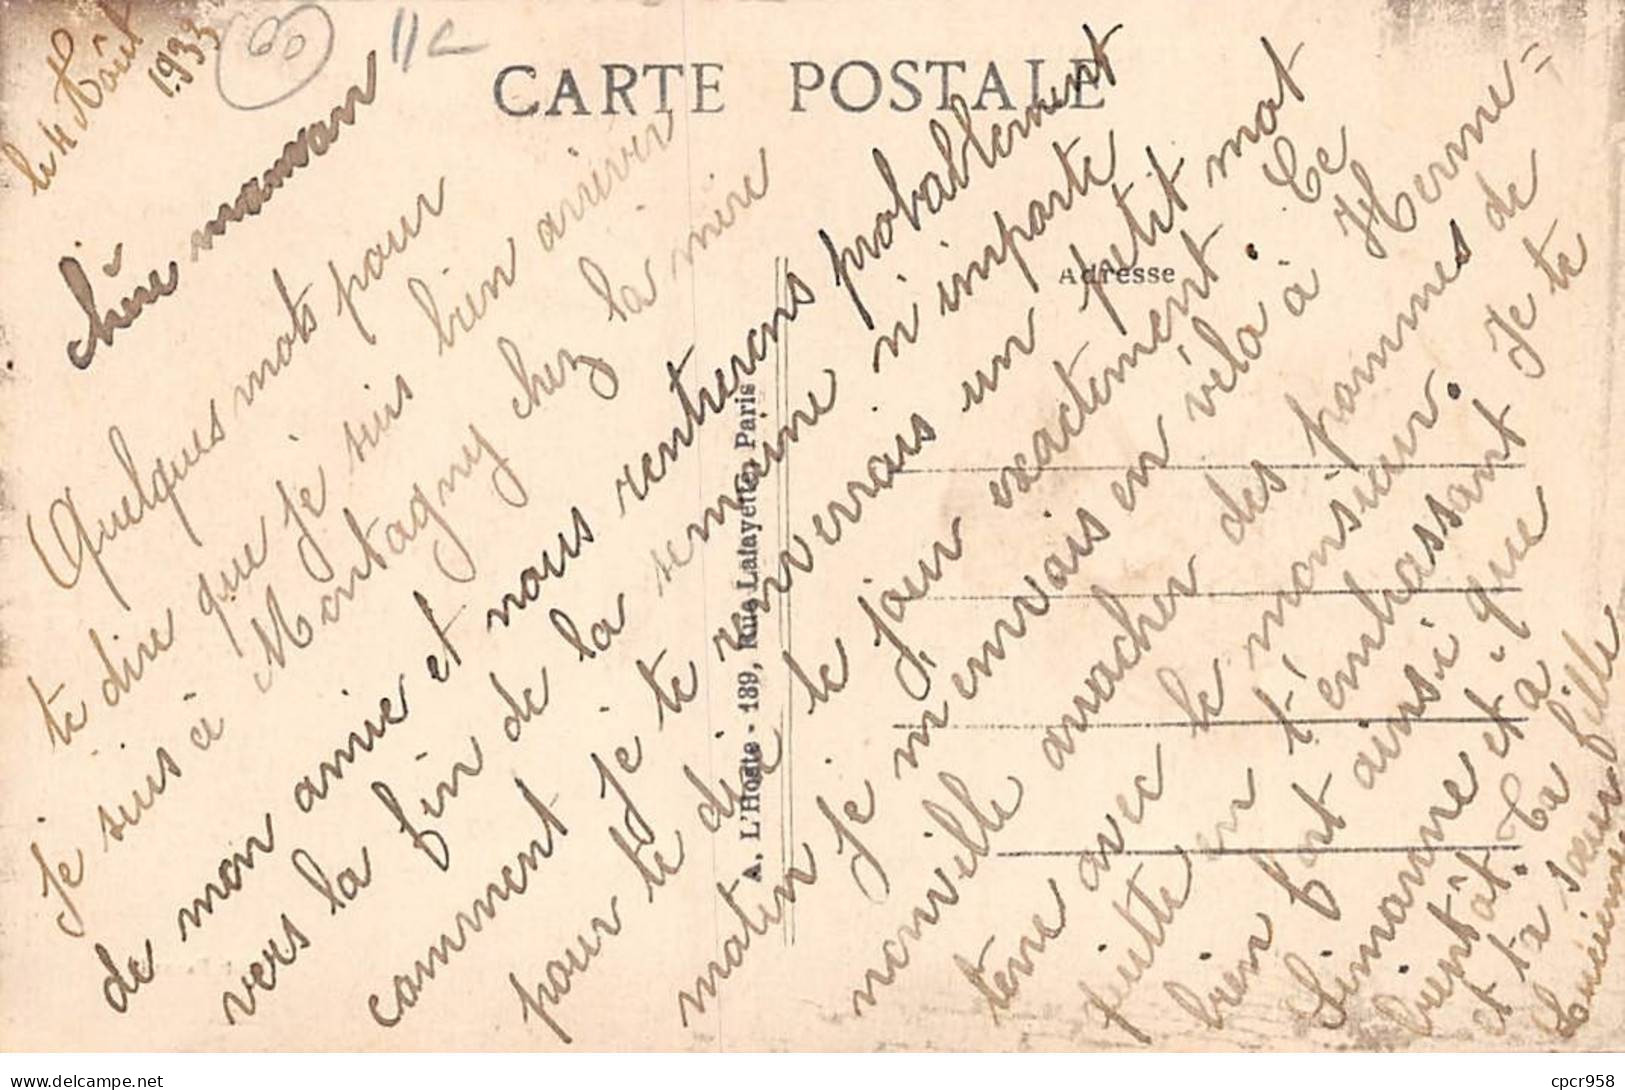 le 4 Août
1933
CARTE POSTALE
Adresse
A. L'Hoste - 189, Rue Lafayette, Paris
chère maman
Quelques mots pour
te dire que je suis bien arriver
Je suis à Montagny chez la mère
de mon amie et nous rentrerons probablement
vers la fin de la semaine n'importe
comment Je te renverrais un petit mot
pour te dire le jour exactement. Ce
matin Je m'envais en vélo à Herme=
nonville arracher des pommes de
terre avec le monsieur. Je te
quitte en t'embrassant
bien fort ainsi que
Simonne et à
bientôt. Ta fille
et ta sœur
Lucienne
cpcr958